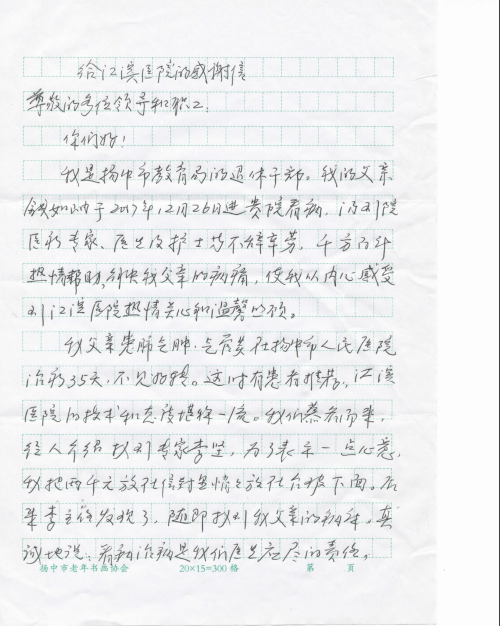 给江滨医院的感谢信
尊敬的各位领导和职工:
你们好!
我是扬中市教育局的退休干部。我的父亲
于2017年12月26日进贵院看病,得到院
医务专家、医生及护士均不辞辛劳,千方百计
热情帮助,解决我父亲的病痛,使我从内心感受
到江滨医院热情关心和温馨照顾。
我父亲患肺气肿、气管炎在扬中市人民医院
治疗35天,不见好转。这时有患者推荐,江滨
医院的技术和态度堪称一流。我们慕名而来,
经人介绍找到专家李坚,为了表示一点心意,
我把两千元放在信封里悄悄放在台板下面。后
来李主任发现了,随即找到我父亲的病房,真
诚地说:看病治病是我们医生应尽的责任,
扬中市老年书画协会 20×15=300格 第 页